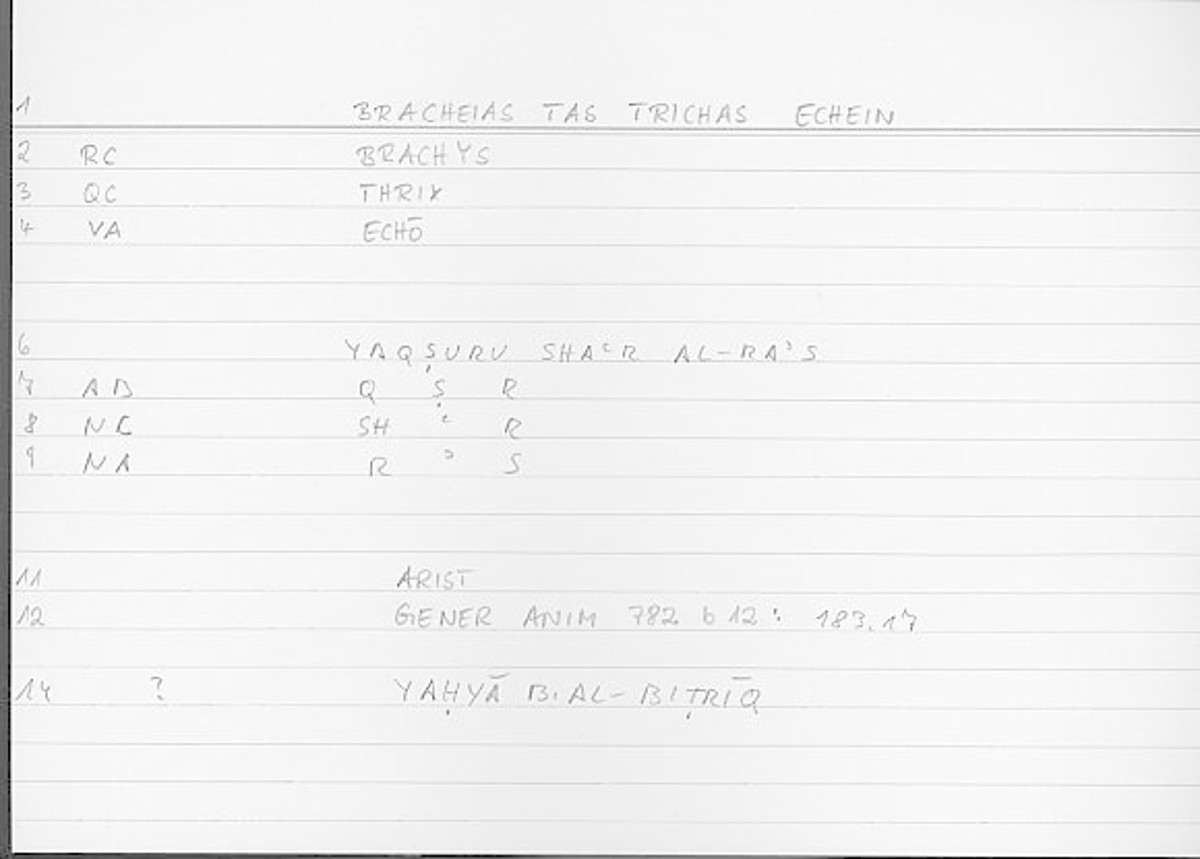 1 BRACHEIAS TAS TRICHAS ECHEIN
2 RC BRACHYS
3 QC THRIX
4 VA ECHŌ
6 YAQṢURU SHAʿR AL-RAʾS
7 AB Q Ṣ R
8 NC SH ʿ R
9 NA R ʾ S
11 ARIST
12 GENER ANIM 782 b 12 : 183.17
14 ? YAḤYĀ B. AL-BIṬRĪQ